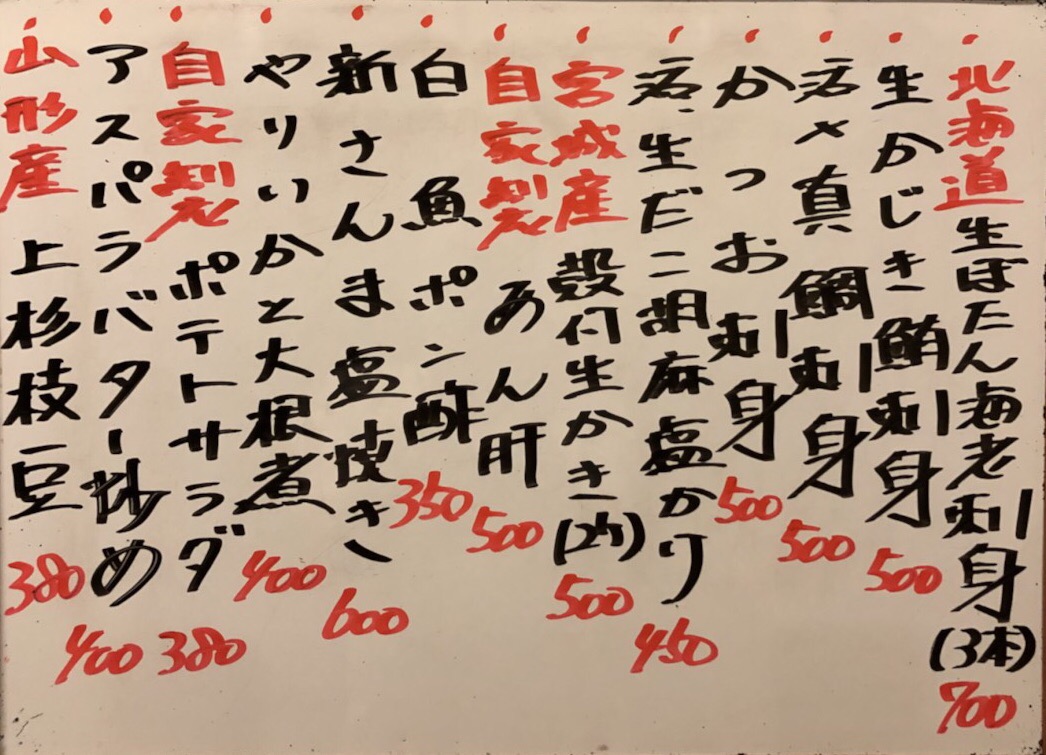 北海道 生ぼたん海老刺身(3本) 700
生かじき鮪刺身 500
活〆真鯛刺身 500
かつお刺身 500
活生だこ胡麻塩 450
宮城産 殻付生かき(2ケ) 500
自家製 あん肝 500
白魚ポン酢 350
新さんま塩焼き 600
やりいかと大根煮 400
自家製 ポテトサラダ 380
アスパラバター炒め 400
山形産 上杉枝豆 380